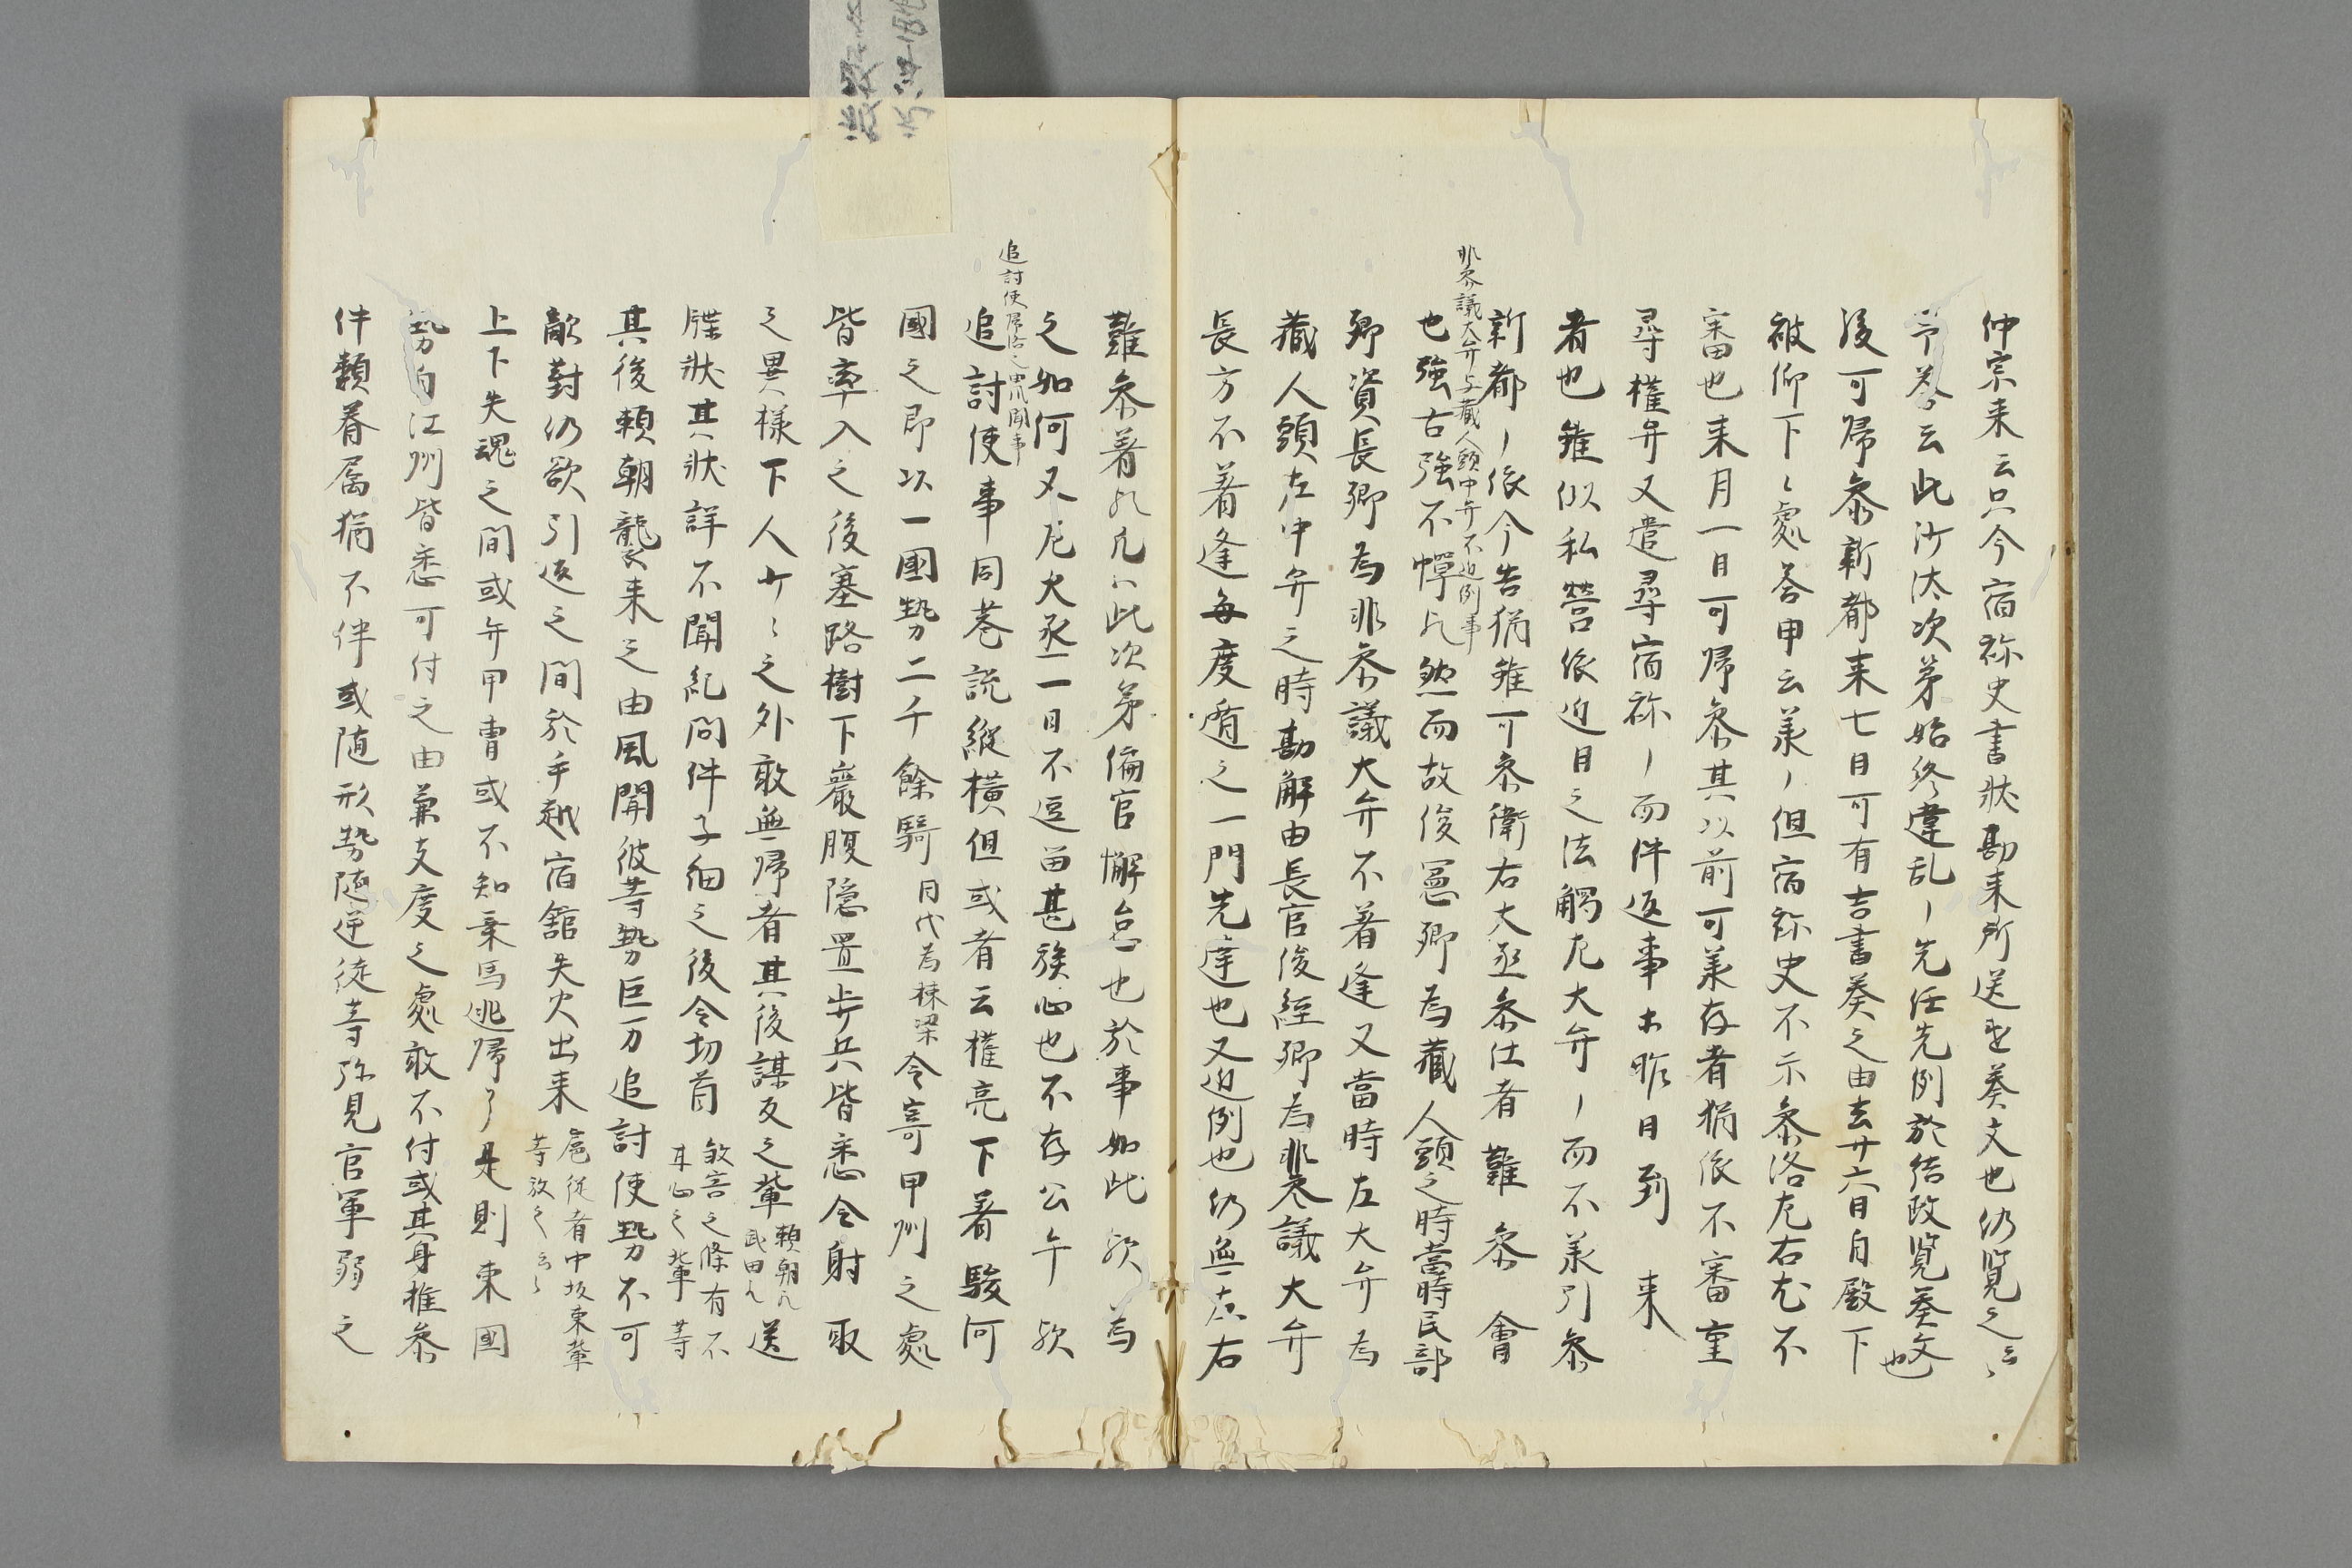 仲宗来云只今宿祢史書状勘来所送之葵文也仍覧之云々
答云此沙汰次第始終違乱〻先任先例於結政覧葵文也
後可帰参新都来七日可有吉書葵之由去廿六日自殿下
被仰下々處答申云羕〻但宿祢史不示参洛左右尤不
審也来月一日可帰参其以前可羕存者猶依不審重
尋權弁又遣尋宿祢〻而件返事木昨日到来
者也雖似私営依近日之法觸左大弁〻而不羕引参
新都〻依今告猶雖可参衛右大丞参仕者難参會
非参議大弁与蔵人頭中弁不近例事
也強右強不憚凡然而故俊憲卿為蔵人頭之時當時民部
卿資長卿為非参議大弁不着逢又當時左大弁為
蔵人頭左中弁之時勘解由長官俊經卿為非参議大弁
長方不着逢毎度遁之一門先達也又近例也仍無左右
難参着凡凡此次第偏官懈怠也於事如此欤為
之如何又左大丞一日不逗留甚族心也不存公平欤
追討使帰洛之由風聞事
追討使事同巷説縦横但或者云權亮下着駿河
國之即以一國勢二千餘騎目代為棟梁令寄甲州之處
皆率入之後塞路樹下巌腹隠置歩兵皆悉令射取
之異様下人少々之外敢無帰者其後謀反之輩頼朝凡武田凡送
牒状其状詳不聞糺問件子細之後令切首敵害之條有不甘心之輩等
其後頼朝襲来之由風聞彼等勢巨万追討使勢不可
敵對仍欲引返之間於手越宿舘失火出来扈従者中坂東輩等放之云々
上下失魂之間或弁甲冑或不知乗馬逃帰了是則東國
勢自江州皆悉可付之由兼支度之處敢不付或其身雖参
件類眷属猶不伴或随形勢随逆徒等弥見官軍弱之